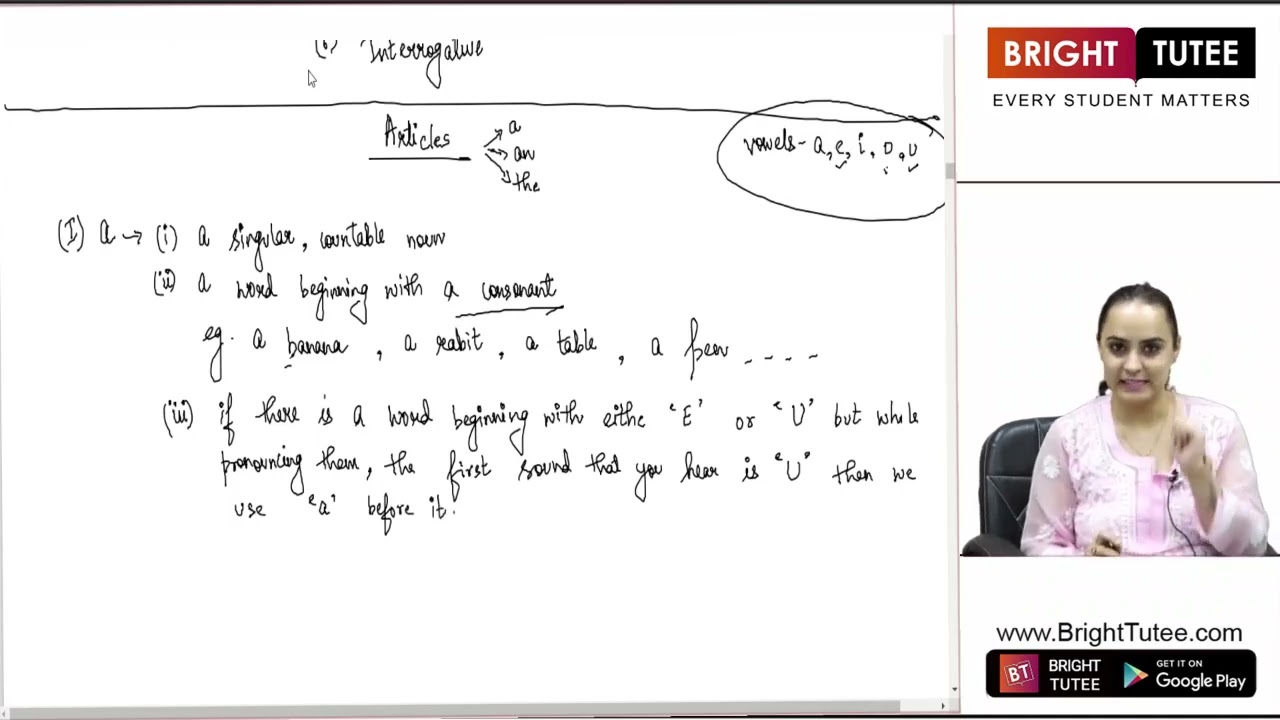 Interrogative
Articles
a
an
the
vowels - a, e, i, o, u
(I) a → (i) a singular, countable noun
(ii) a word beginning with a consonant
eg. a banana, a rabit, a table, a pen ----
(iii) if there is a word beginning with eithe 'E' or 'U' but while
pronouncing them, the first sound that you hear is 'U' then we
use 'a' before it.
BRIGHT TUTEE
EVERY STUDENT MATTERS
www.BrightTutee.com
BT BRIGHT TUTEE
GET IT ON
Google Play